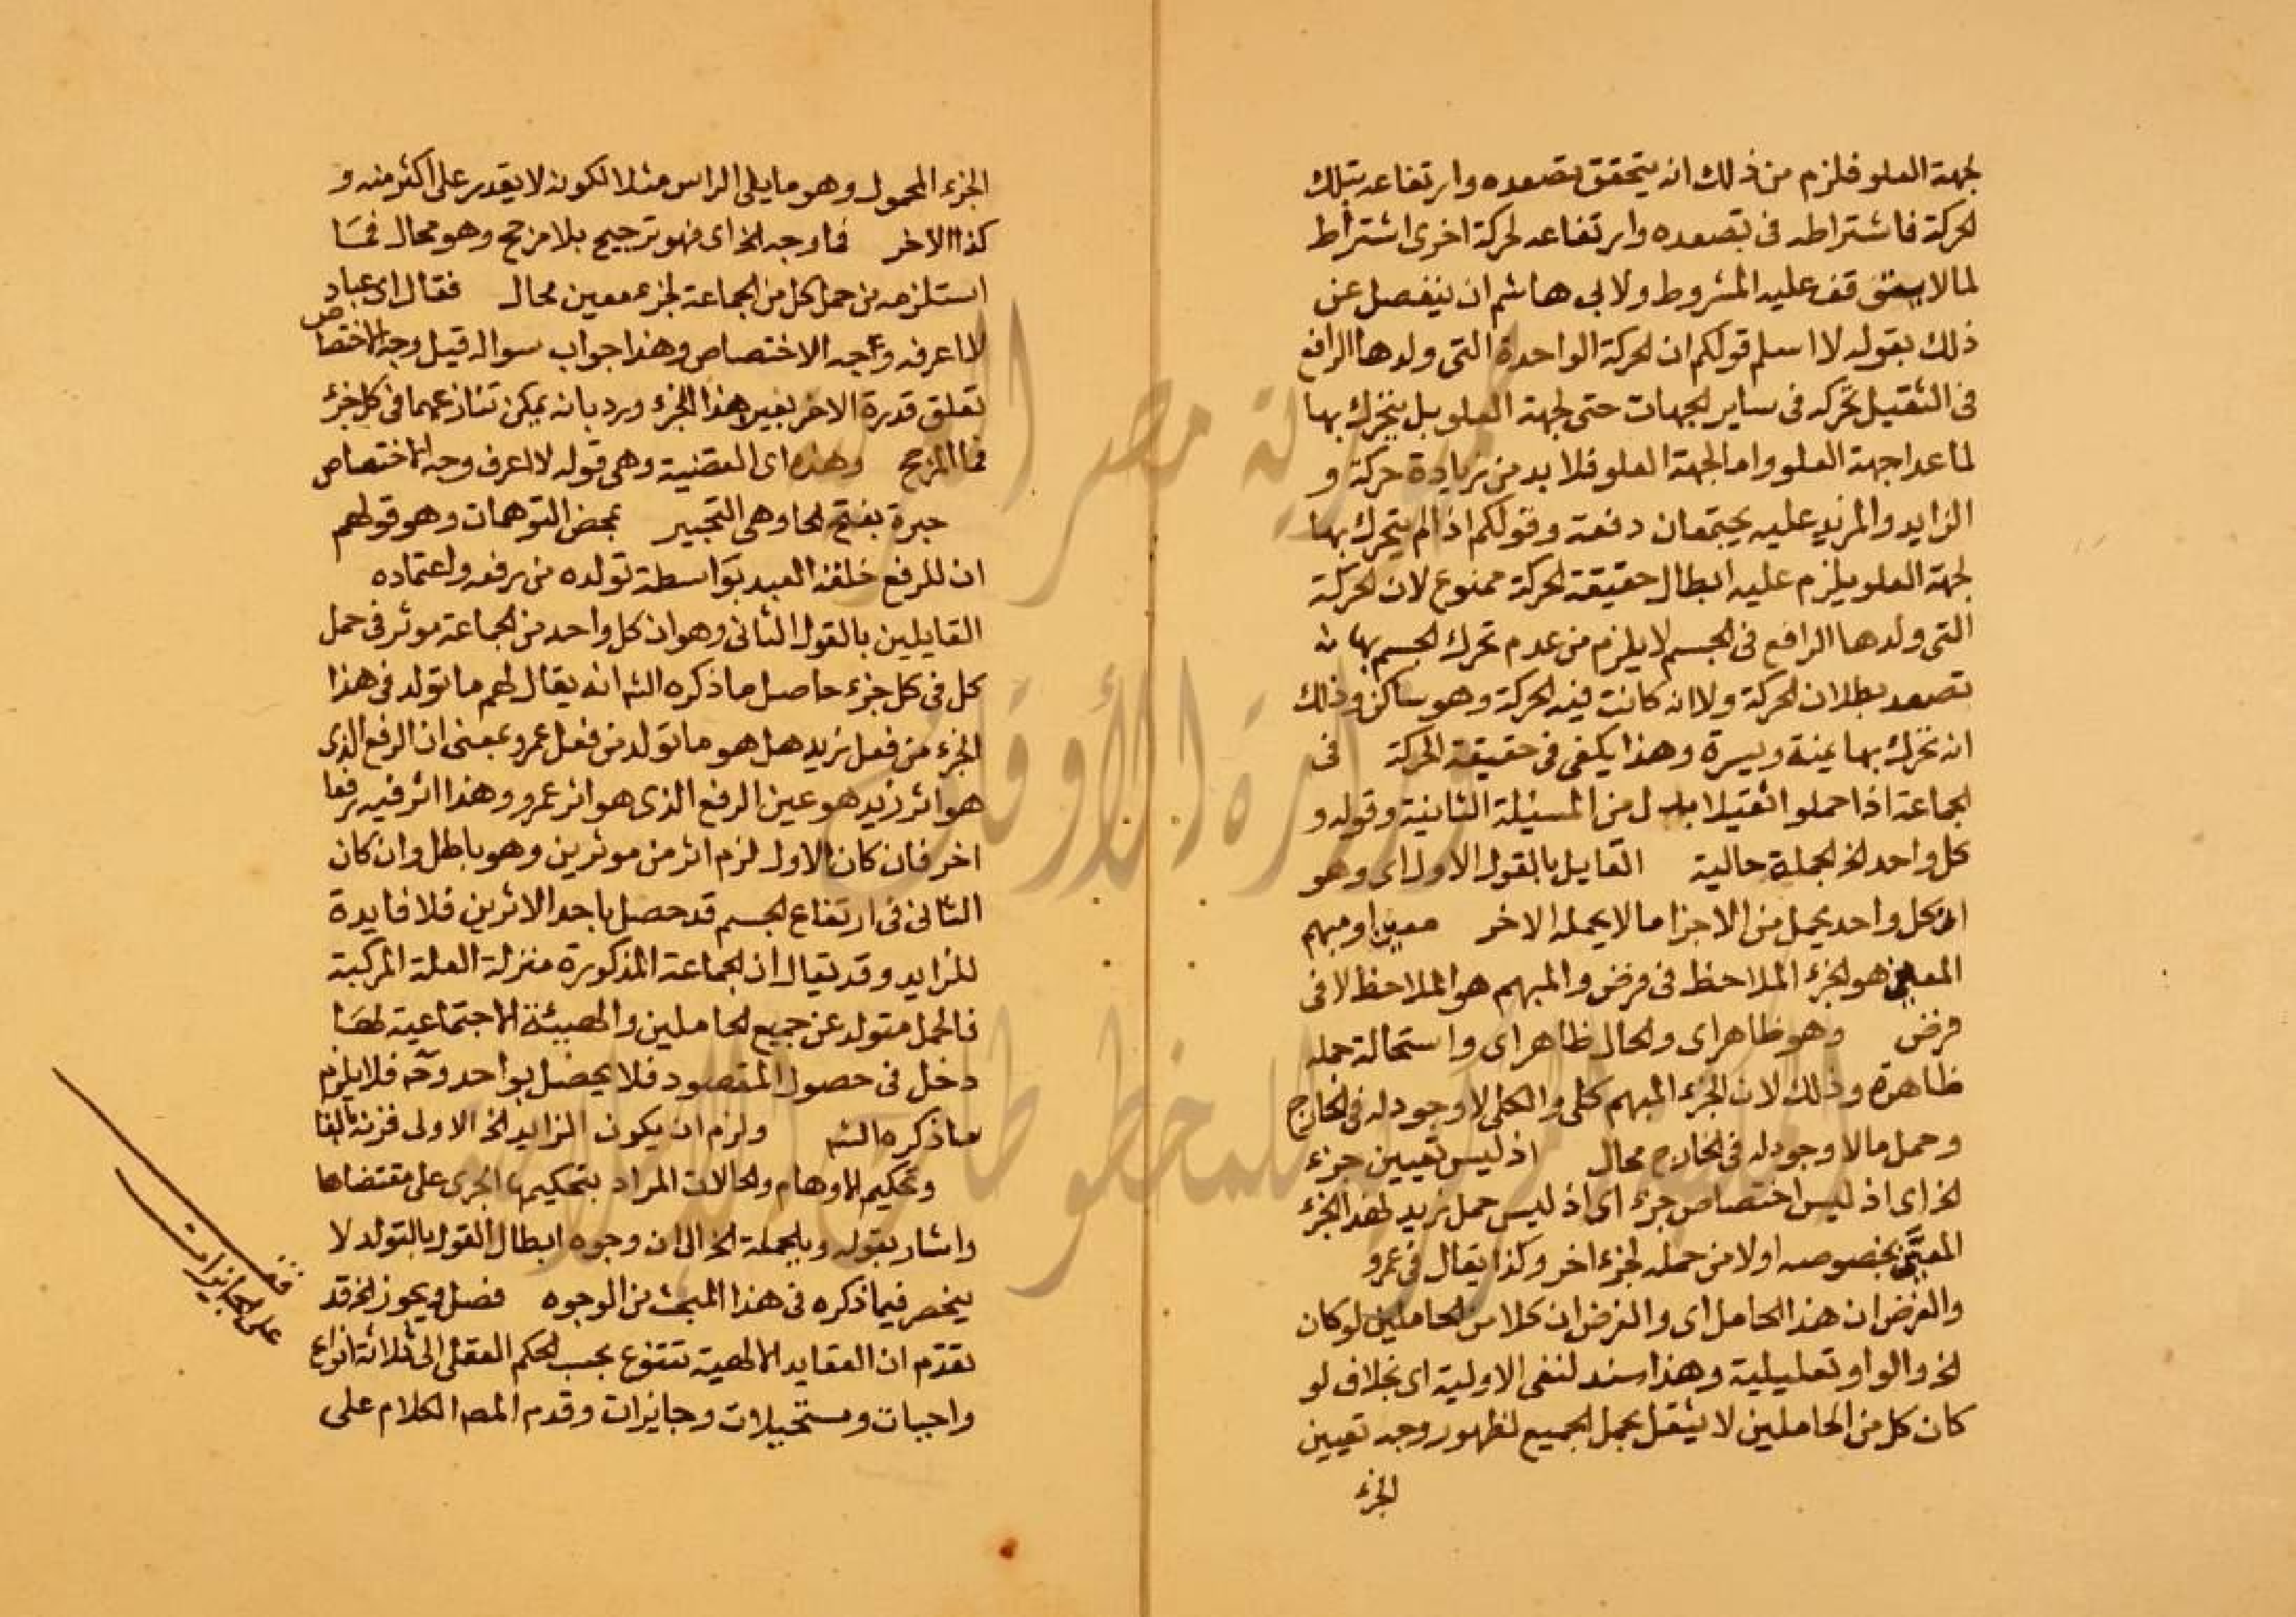 لجهة العلو فلزم من ذلك انه يتحقق تصعده وارتفاعه بتلك
الحركة فاشتراطه فى تصعده وارتفاعه لحركة اخرى اشتراط
لما لا يتوقف عليه المشروط ولابى هاشم ان ينفصل عن
ذلك بقوله لا اسلم قولكم ان الحركة الواحدة التى ولدها الرافع
فى الثقيل تحركه فى ساير الجهات حتى لجهة العلو بل يتحرك بها
لما عدا جهة العلو واما لجهة العلو فلا بد من زيادة حركة و
الزايد والمزيد عليه يجتمعان دفعة وقولكم اذا لم يتحرك بها
لجهة العلو يلزم عليه ابطال حقيقة الحركة ممنوع لان الحركة
التى ولدها الرافع فى الجسم لا يلزم من عدم تحرك الجسم بها
تصعد بطلان الحركة ولا انه كانت فيه الحركة وهو ساكن وذلك
انه تحرك بها يمنة ويسرة وهذا يكفى فى حقيقة الحركة فى
الجماعة اذا حملوا ثقيلا بدل من المسئلة الثانية وقوله و
كل واحد الخ الجملة حالية القايل بالقول الاول اى وهو
ان كل واحد يحمل من الاجزا ما لا يحمله الاخر معين او مبهم
المعين هو الجزء الملاحظ فى فرض والمبهم هو الملاحظ لا فى
فرض وهو ظاهر اى والحال ظاهر اى واستحالة حمله
ظاهرة وذلك لان الجزء المبهم كلى والكلى لا وجود له فى الخارج
وحمل ما لا وجود له فى الخارج محال اذ ليس تعيين جزء
الخ اى اذ ليس اختصاص جزء اى اذ ليس حمل زيد لهذا الجزء
المعين بخصوصه اولا من حمله لجزء اخر وكذا يقال فى عمرو
والفرض ان هذا الحامل اى والفرض ان كلا من الحاملين لو كان
الخ والواو تعليلية وهذا سند لنفى الاولية اى بخلاف لو
كان كل من الحاملين لا يثقل بحمل الجميع لظهور وجه تعيين
الجزء
الجزء المحمول وهو ما يلى الراس مثلا لكونه لا يقدر على اكثر منه و
كذا الاخر فما وجه الخ اى فهو ترجيح بلا مرجح وهو محال فما
استلزمه من حمل كل من الجماعة لجزء معين محال فقال اى عباد
لا اعرف وجه الاختصاص وهذا جواب سوال قيل وجه الاختصاص
تعلق قدرة الاخر بغير هذا الجزء ورد بانه يمكن تنازعهما فى كل جزء
فما المرجح وهذه اى القضية وهى قوله لا اعرف وجه الاختصاص
حيرة بفتح الحا وهى التحيير بمحض التوهمات وهو قولهم
ان للرفع خلقه العبد بواسطة تولده من رفعه واعتماده
القايلين بالقول الثانى وهو ان كل واحد من الجماعة موثر فى حمل
كل فى كل جزء حاصل ما ذكره الشه انه يقال لهم ما تولد فى هذا
الجزء من فعل زيد هل هو ما تولد من فعل عمرو بمعنى ان الرفع الذى
هو اثر زيد هو عين الرفع الذى هو اثر عمرو وهذا اثر فيه رفعا
اخر فان كان الاول لزم اثر من موثرين وهو باطل وان كان
الثانى فى ارتفاع الجسم قد حصل باحد الاثرين فلا فايدة
للزايد وقد يقال ان الجماعة المذكورة منزلة العلة المركبة
فالحمل متولد عن جميع الحاملين والهيئة الاجتماعية لها
دخل فى حصول المقصود فلا يحصل بواحد وح فلا يلزم
ما ذكره الشه ولزم ان يكون الزايد الخ الاولى
وتحكيم الاوهام والحالات المراد بتحكيمها الجرى على مقتضاها
واشار بقوله وبالجملة الخ الى ان وجوه ابطال القول بالتولد لا
ينحصر فيما ذكره فى هذا المبحث من الوجوه فصل ويجوز الخ قد
تقدم ان العقايد الالهية تتنوع بحسب الحكم العقلى الى ثلاثة انواع
واجبات ومستحيلات وجايزات وقدم المصـ الكلام على
قف
على الجايزات